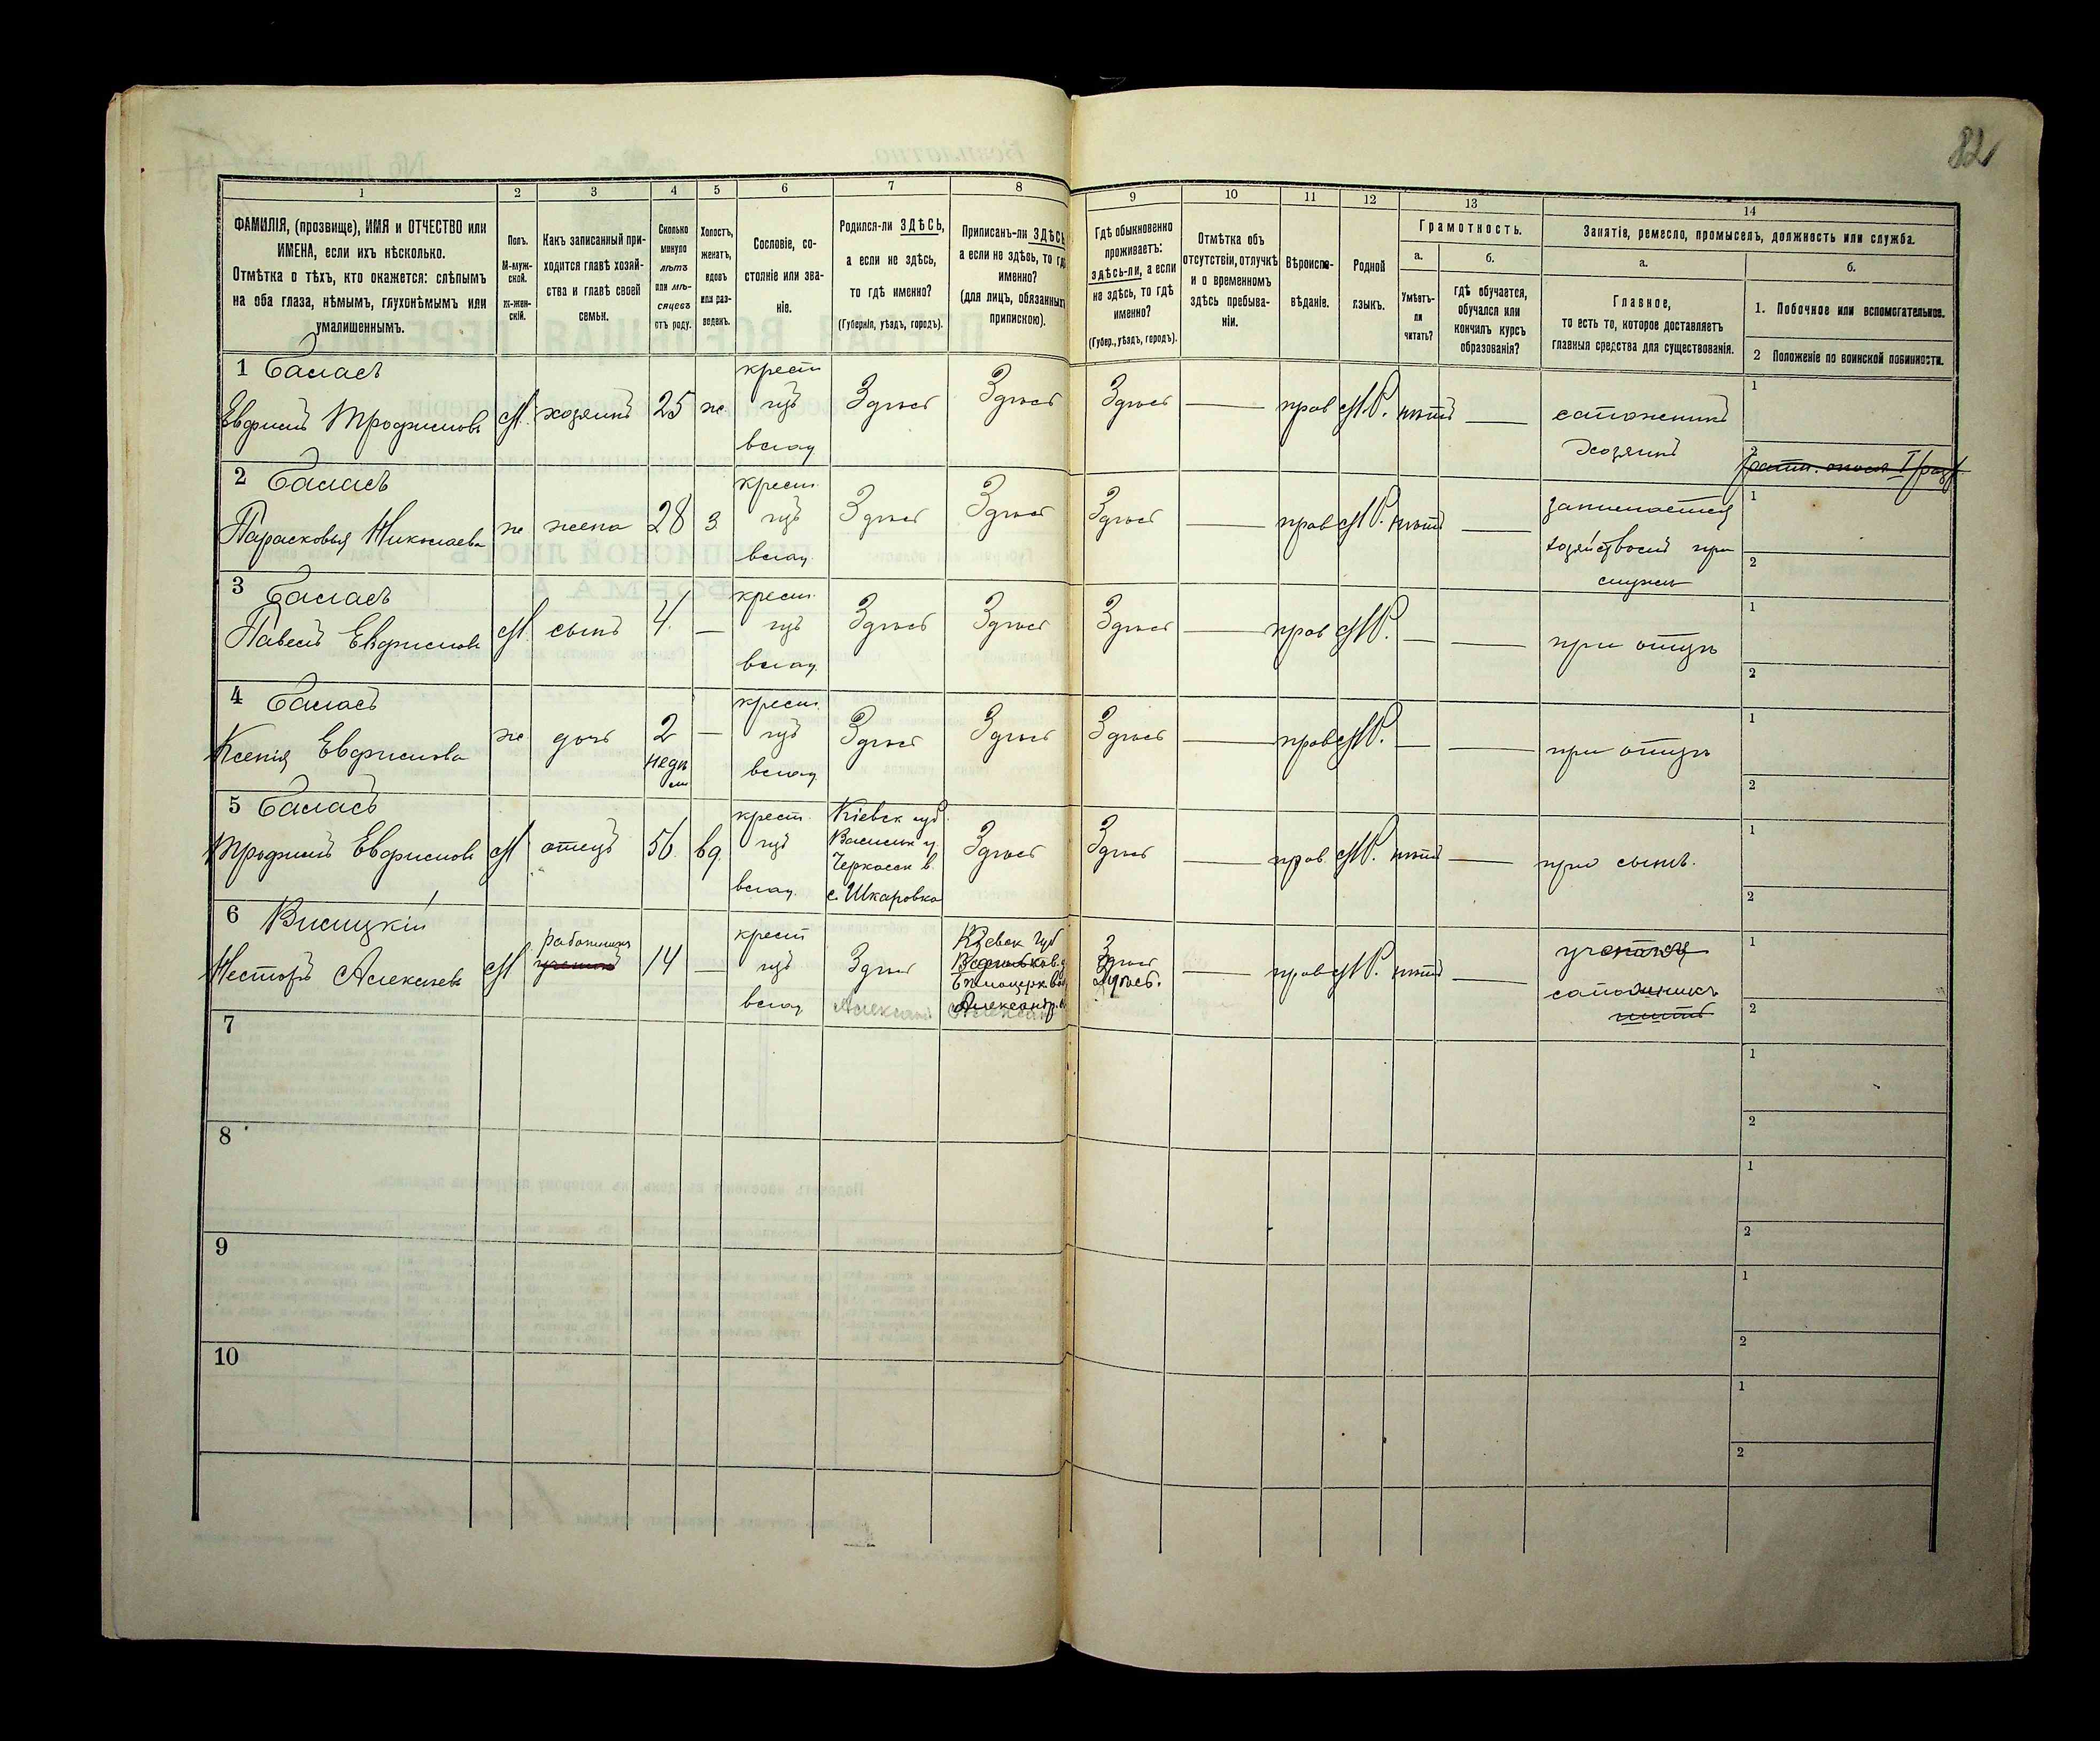 82
1
2
3
4
5
6
7
8
9
10
11
12
13
14
ФАМИЛІЯ, (прозвище), ИМЯ и ОТЧЕСТВО или
ИМЕНА, если ихъ нѣсколько.
Отмѣтка о тѣхъ, кто окажется: слѣпымъ
на оба глаза, нѣмымъ, глухонѣмымъ или
умалишеннымъ.
Полъ.
М-муж-
ской.
Ж-жен-
скій.
Какъ записанный при-
ходится главѣ хозяй-
ства и главѣ своей
семьи.
Сколько
минуло
лѣтъ
или мѣ-
сяцевъ
отъ роду.
Холостъ,
женатъ,
вдовъ
или раз-
веденъ.
Сословіе, со-
стояніе или зва-
ніе.
Родился-ли ЗДѢСЬ,
а если не здѣсь,
то гдѣ именно?
(Губернія, уѣздъ, городъ).
Приписанъ-ли ЗДѢСЬ
а если не здѣсь, то гдѣ
именно?
(для лицъ, обязанныхъ
припискою).
Гдѣ обыкновенно
проживаетъ:
здѣсь-ли, а если
не здѣсь, то гдѣ
именно?
(Губер., уѣздъ, городъ).
Отмѣтка объ
отсутствіи, отлучкѣ
и о временномъ
здѣсь пребыва-
ніи.
Вѣроиспо-
вѣданіе.
Родной
языкъ.
Грамотность.
а.
Умѣетъ-
ли
читать?
б.
гдѣ обучается,
обучался или
кончилъ курсъ
образованія?
Занятіе, ремесло, промыселъ, должность или служба.
а.
Главное,
то есть то, которое доставляетъ
главныя средства для существованія.
б.
1. Побочное или вспомогательное.
2 Положеніе по воинской повинности.
1 Баласъ
Евфимъ Трофимовъ М. хозяинъ 25 ж. крест изъ влад Здѣсь Здѣсь Здѣсь — прав М.Р. нѣтъ — сапожникъ
хозяинъ
1
2
2 Баласъ
Парасковья Николаева ж жена 28 з крест. изъ влад. Здѣсь Здѣсь Здѣсь — прав М.Р. нѣтъ — занимается
хозяйствомъ при
мужѣ
1
2
3 Баласъ
Павелъ Евфимовъ М сынъ 4. — крест. изъ влад. Здѣсь Здѣсь Здѣсь — прав М.Р. — — при отцѣ
1
2
4 Баласъ
Ксенія Евфимова ж дочь 2 недѣ ли — крест. изъ влад. Здѣсь Здѣсь Здѣсь — прав М.Р. — — при отцѣ
1
2
5 Баласъ
Трофимъ Евфимовъ М отецъ 56. вд. крест. изъ влад. Кіевск губ. Васильк у. Черкасск в. с. Шкаровка Здѣсь Здѣсь — прав. М.Р. нѣтъ — при сынѣ.
1
2
6 Вилицкій
Несторъ Алексѣевъ М работникъ 14 — крест изъ влад Здѣсь Кіевск Губ Васильков. у Бѣлоцерк. вол Александр. Здѣсь. — прав М.Р. нѣтъ — сапожникъ
1
2
7
1
2
8
1
2
9
1
2
10
1
2